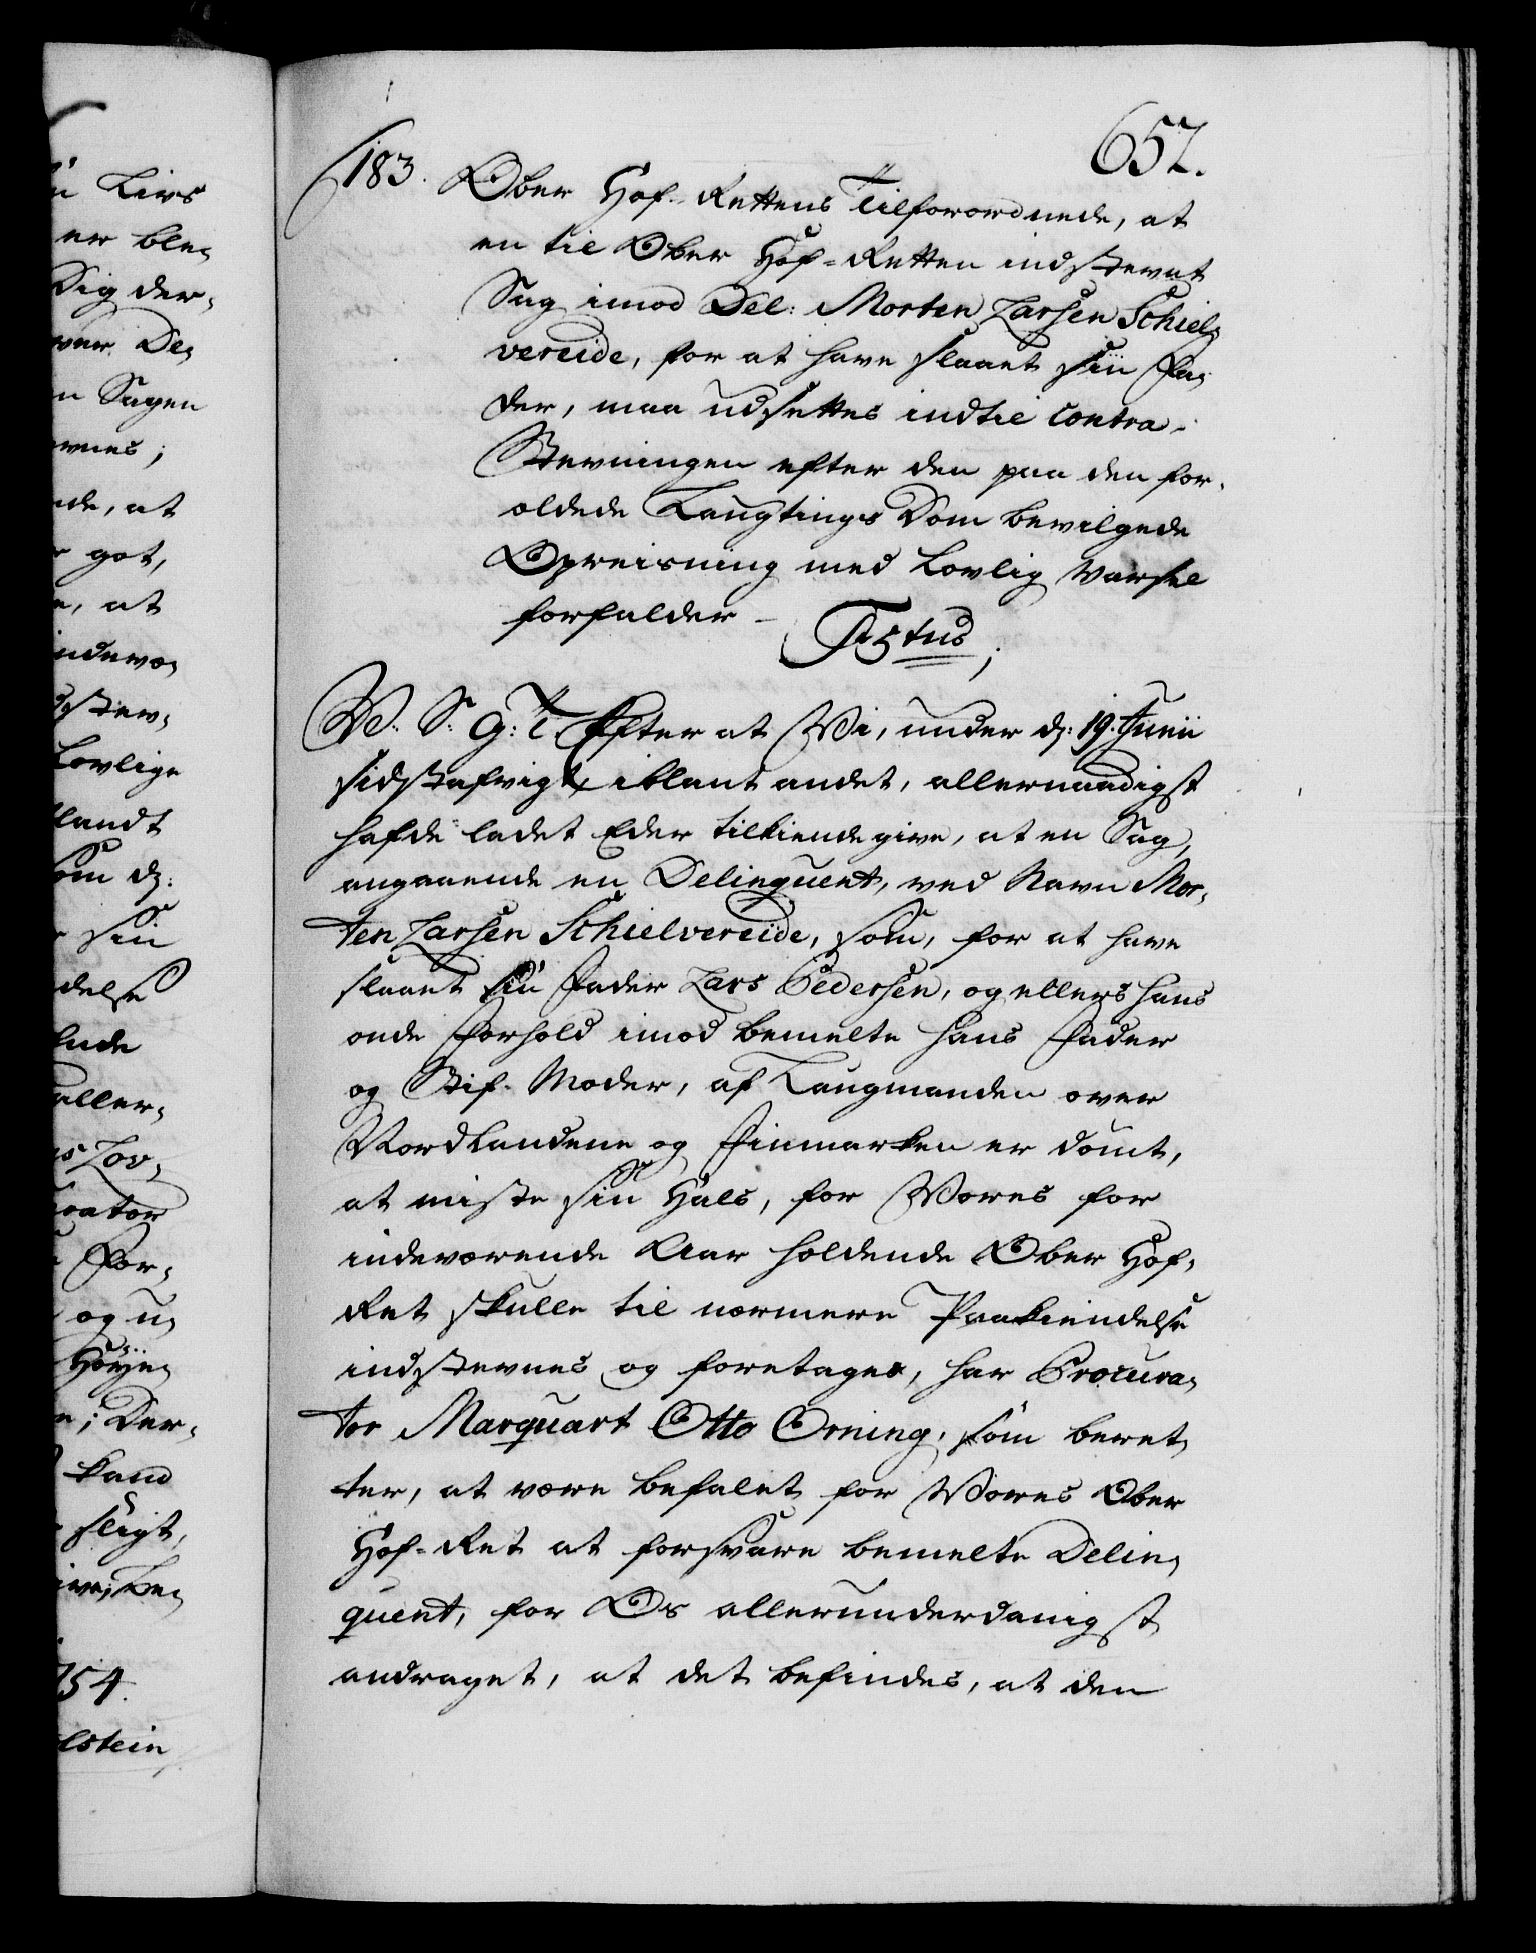 652.
183. Ober Hof-Rettens Tilforordnede, at
en til Ober Hof-Retten indstevnt
Sag imod Del: Morten Larsen Schiel-
vereide, for at have slaaet sin Fa-
der, maa udsettes indtil Contra-
Stevningen efter den paa den for-
oldede Laugtings Dom bevilgede
Opreisning med Lovlig Varsel
forfalder -
F5tus
W: S: G: T. Efter at Vi, under d: 19. Junii
sidstafvigt, iblant andet, allernaadigst
hafde ladet Eder tilkiendegive, at en Sag,
angaaende en Delinquent, ved Navn Mor-
ten Larsen Schielvereide, som, for at have
slaaet sin Fader Lars Pedersen, og ellers hans
onde Forhold imod bemelte hans Fader
og Stif-Moder, af Laugmanden over
Nordlandene og Finmarken er dömt,
at miste sin Hals, for Vores for
indeværende Aar holdende Ober Hof-
Ret skulle til nærmere Paakiendelse
indstevnes og foretages, har Procura-
tor Marquart Otto Orning, som beret-
ter, at være befalet for Vores Ober
Hof-Ret at forsvare bemelte Delin-
quent, for Os allerunderdanigst
andraget, at det befindes, at den
Livs
er ble-
Dig der-
De-
Sagen
at
got,
at
Lovlige
landt
d:
sin
delse
aller-
Lov-
For-
og u-
Der-
kand
sligt,
754.
lstein